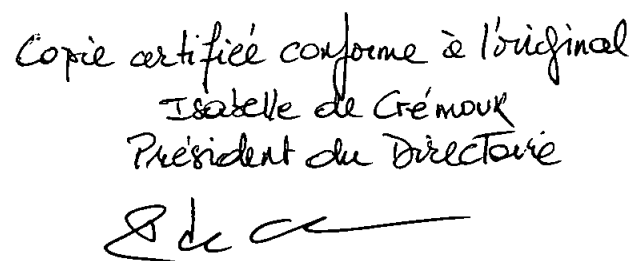 Copie certifiée conforme à l'original
Isabelle de Crémoux
Président du Directoire